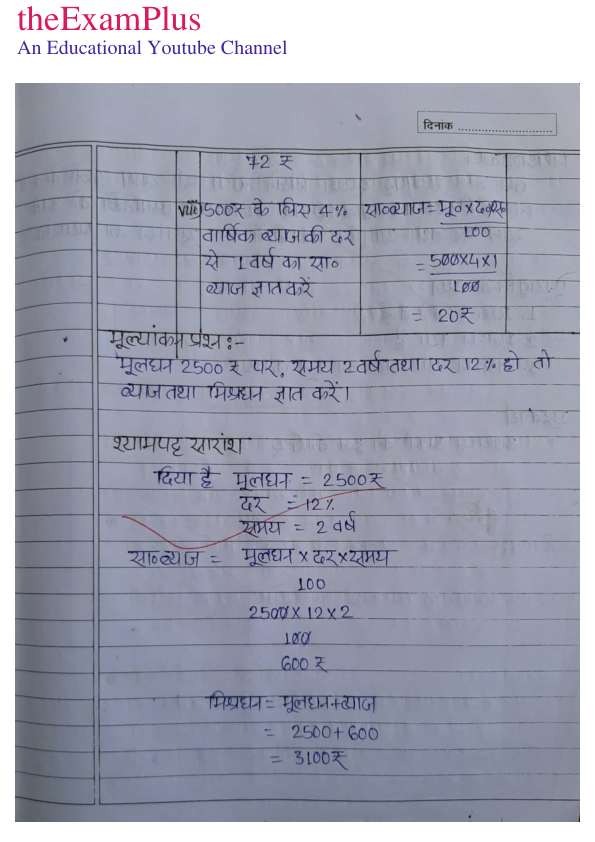 theExamPlus
An Educational Youtube Channel
दिनांक ..............................
72 ₹
viii) 500₹ के लिए 4% सा०ब्याज = मू०×द०×स०
वार्षिक ब्याज की दर 100
से 1 वर्ष का सा० = 500×4×1
ब्याज ज्ञात करें 100
= 20₹
मूल्यांकन प्रश्न :-
मूलधन 2500 ₹ पर, समय 2 वर्ष तथा दर 12% हो तो
ब्याज तथा मिश्रधन ज्ञात करें।
श्यामपट्ट सारांश
दिया है मूलधन = 2500₹
दर = 12%
समय = 2 वर्ष
सा०ब्याज = मूलधन × दर × समय
100
2500 × 12 × 2
100
600 ₹
मिश्रधन = मूलधन + ब्याज
= 2500 + 600
= 3100₹